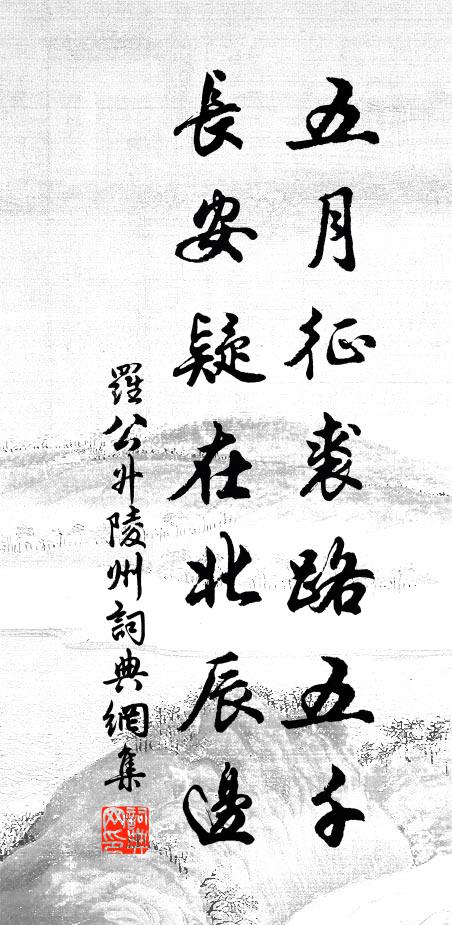 五月征裘路五千
長安疑在北辰邊
羅公升陵州詞典網集